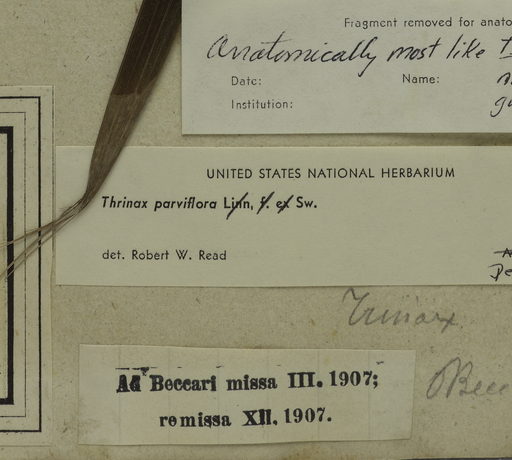 Fragment removed for
Anatomically most like
Date: Name:
Institution:
UNITED STATES NATIONAL HERBARIUM
Thrinax parviflora Linn, f. ex Sw.
det. Robert W. Read
Trinax
Ad Beccari missa III. 1907;
remissa XII. 1907.